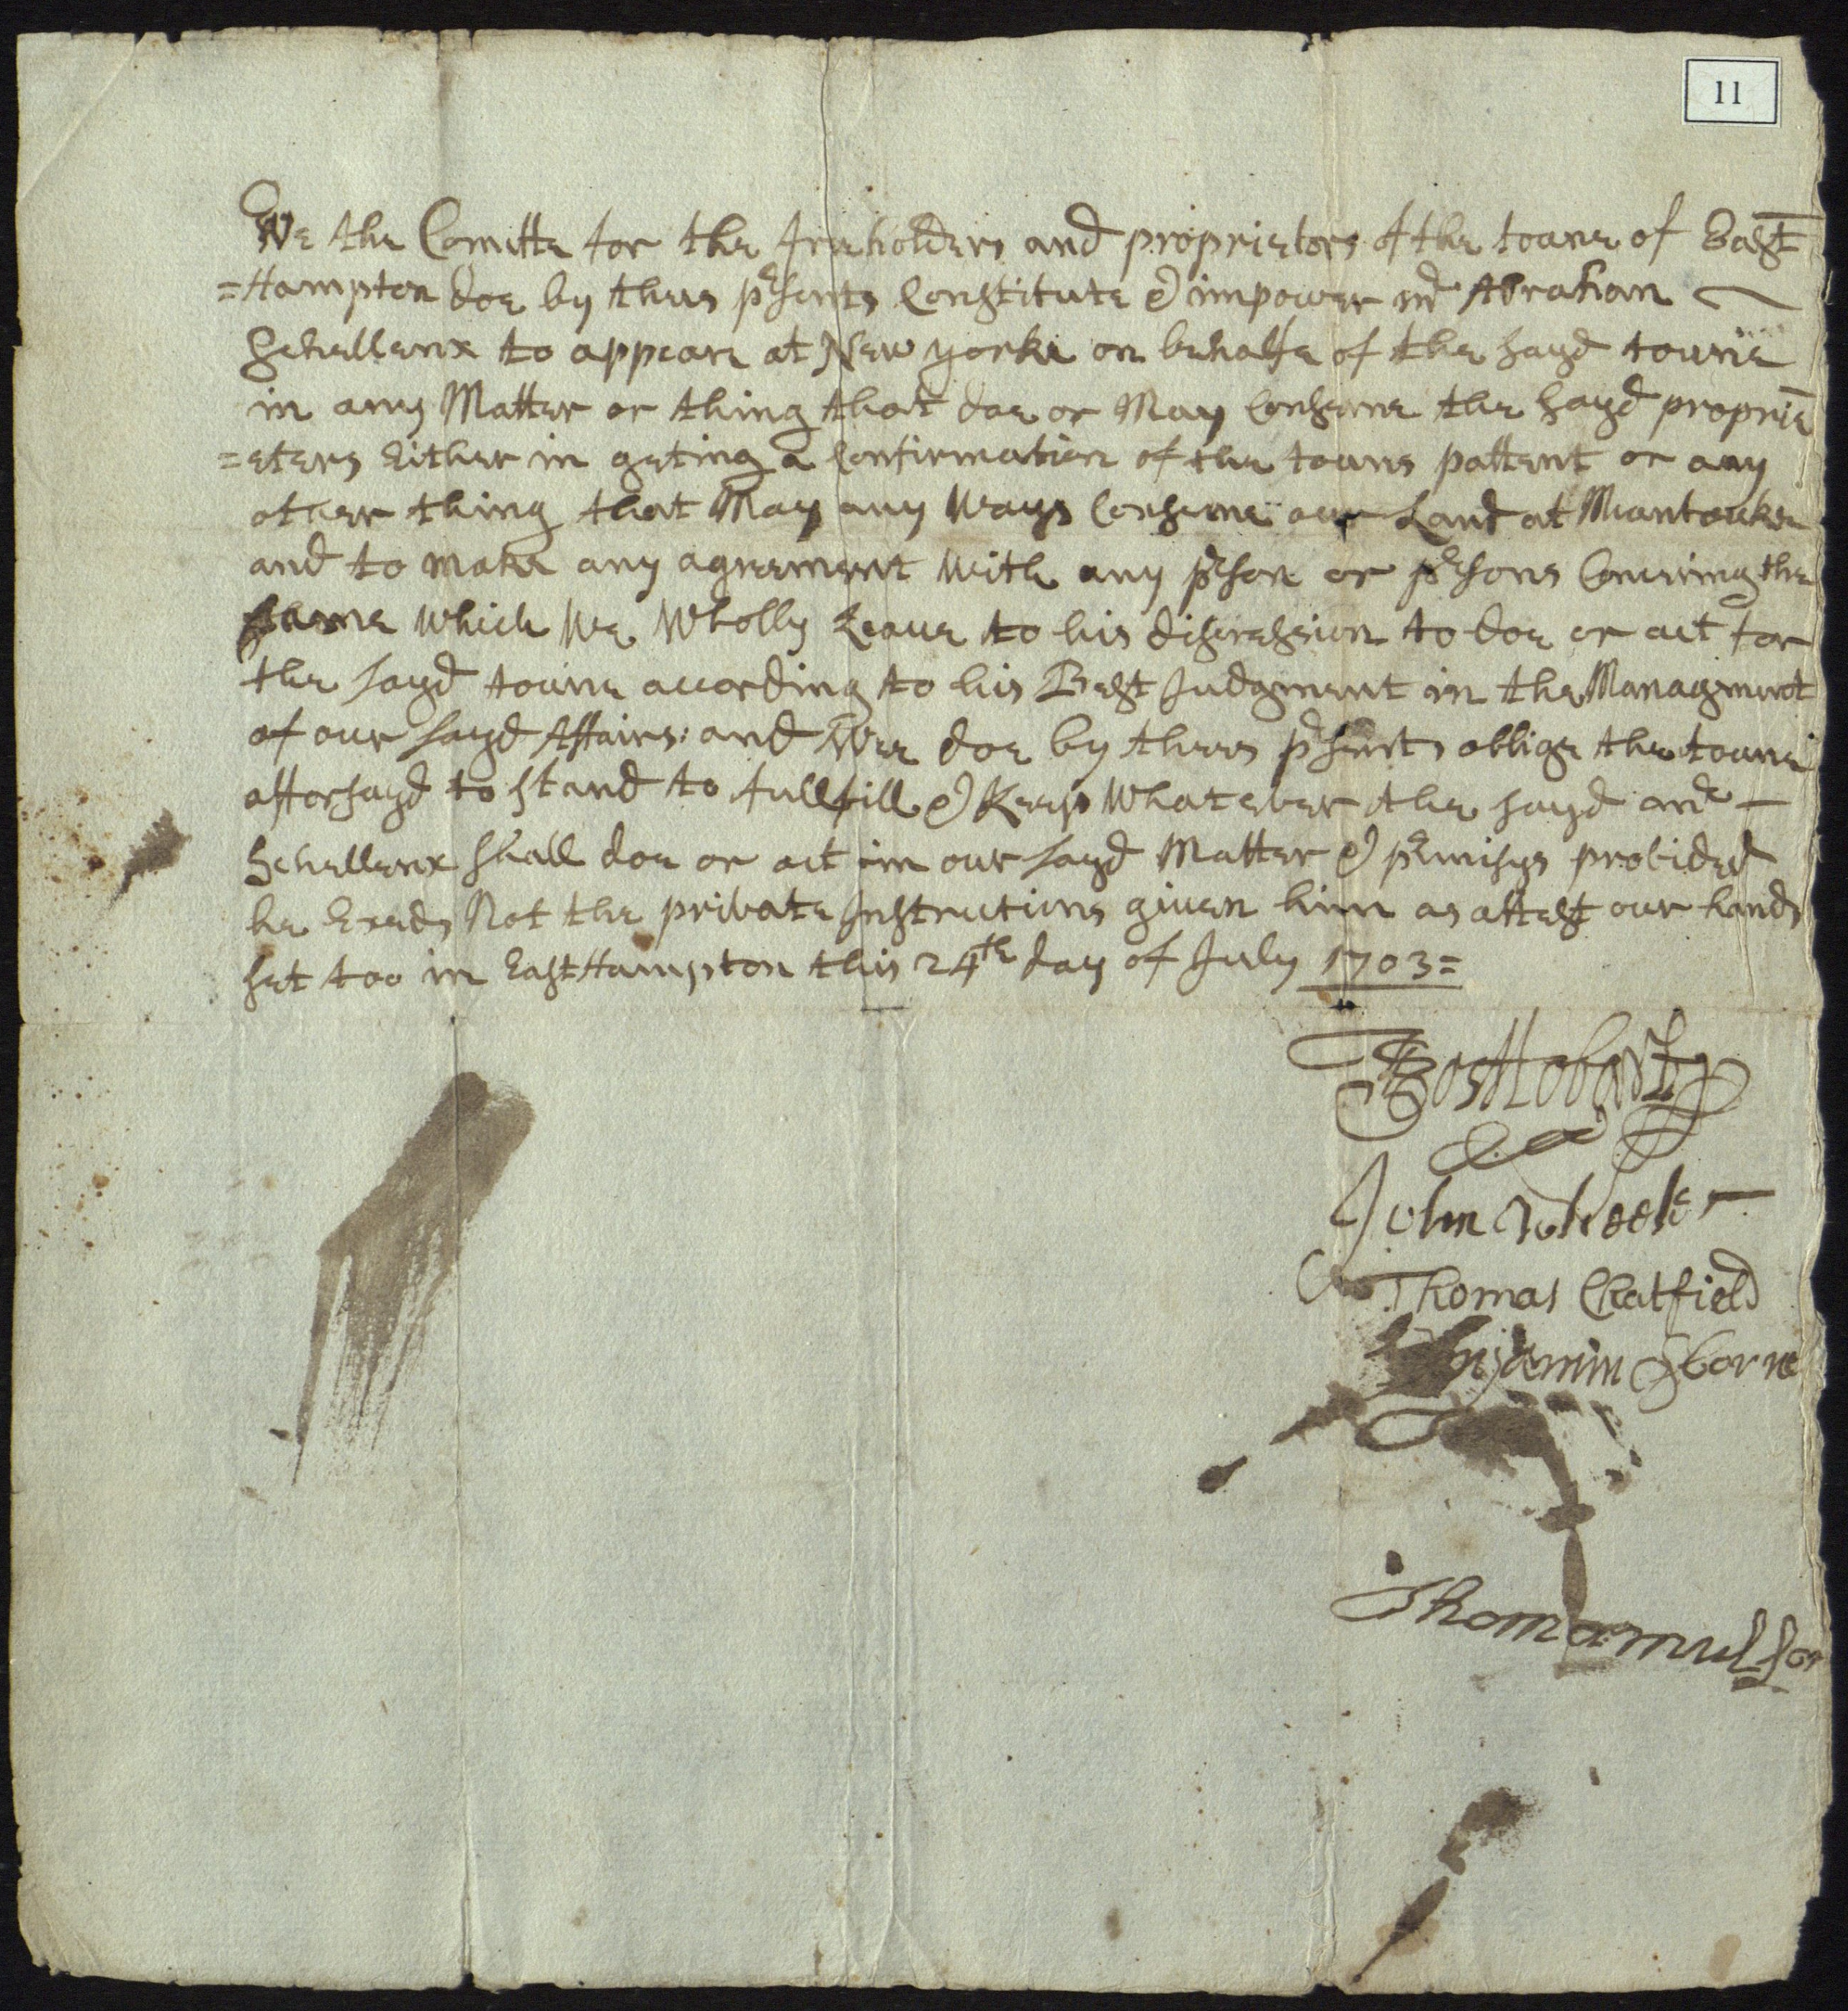 11
We the Comitte for the freeholders and proprietors of the towne of East
=Hampton doe by thees psents Constitute & impower mr Abraham
Schellenx to appeare at New yorke on behalfe of the sayd towne
in any Matter or thing that doe or May Conserne the sayd proprie
=eters Either in geting a Confirmation of the towns pattent or any
other thing that May any Ways Conserne our Land at Muntauket
and to make any agreement With any pson or psons Conserning the
same Which We Wholly Leave to his discression to doe or act for
the sayd towne according to his Best Judgment in the Managment
of our sayd Affairs: and Wee doe by thees psents oblige the towne
afforsayd to stand to fullfill & Keep Whatever the sayd mr
Schellenx shall doe or act in our sayd Matter & pmisys provided
he Exeeds Not the private Instructions given him as attest our hands
set too in EastHampton this 24th day of July 1703=
Jos Hobart
John Wheeler
Thomas Chatfield
Benjamin Osborne
Thomas mulfor